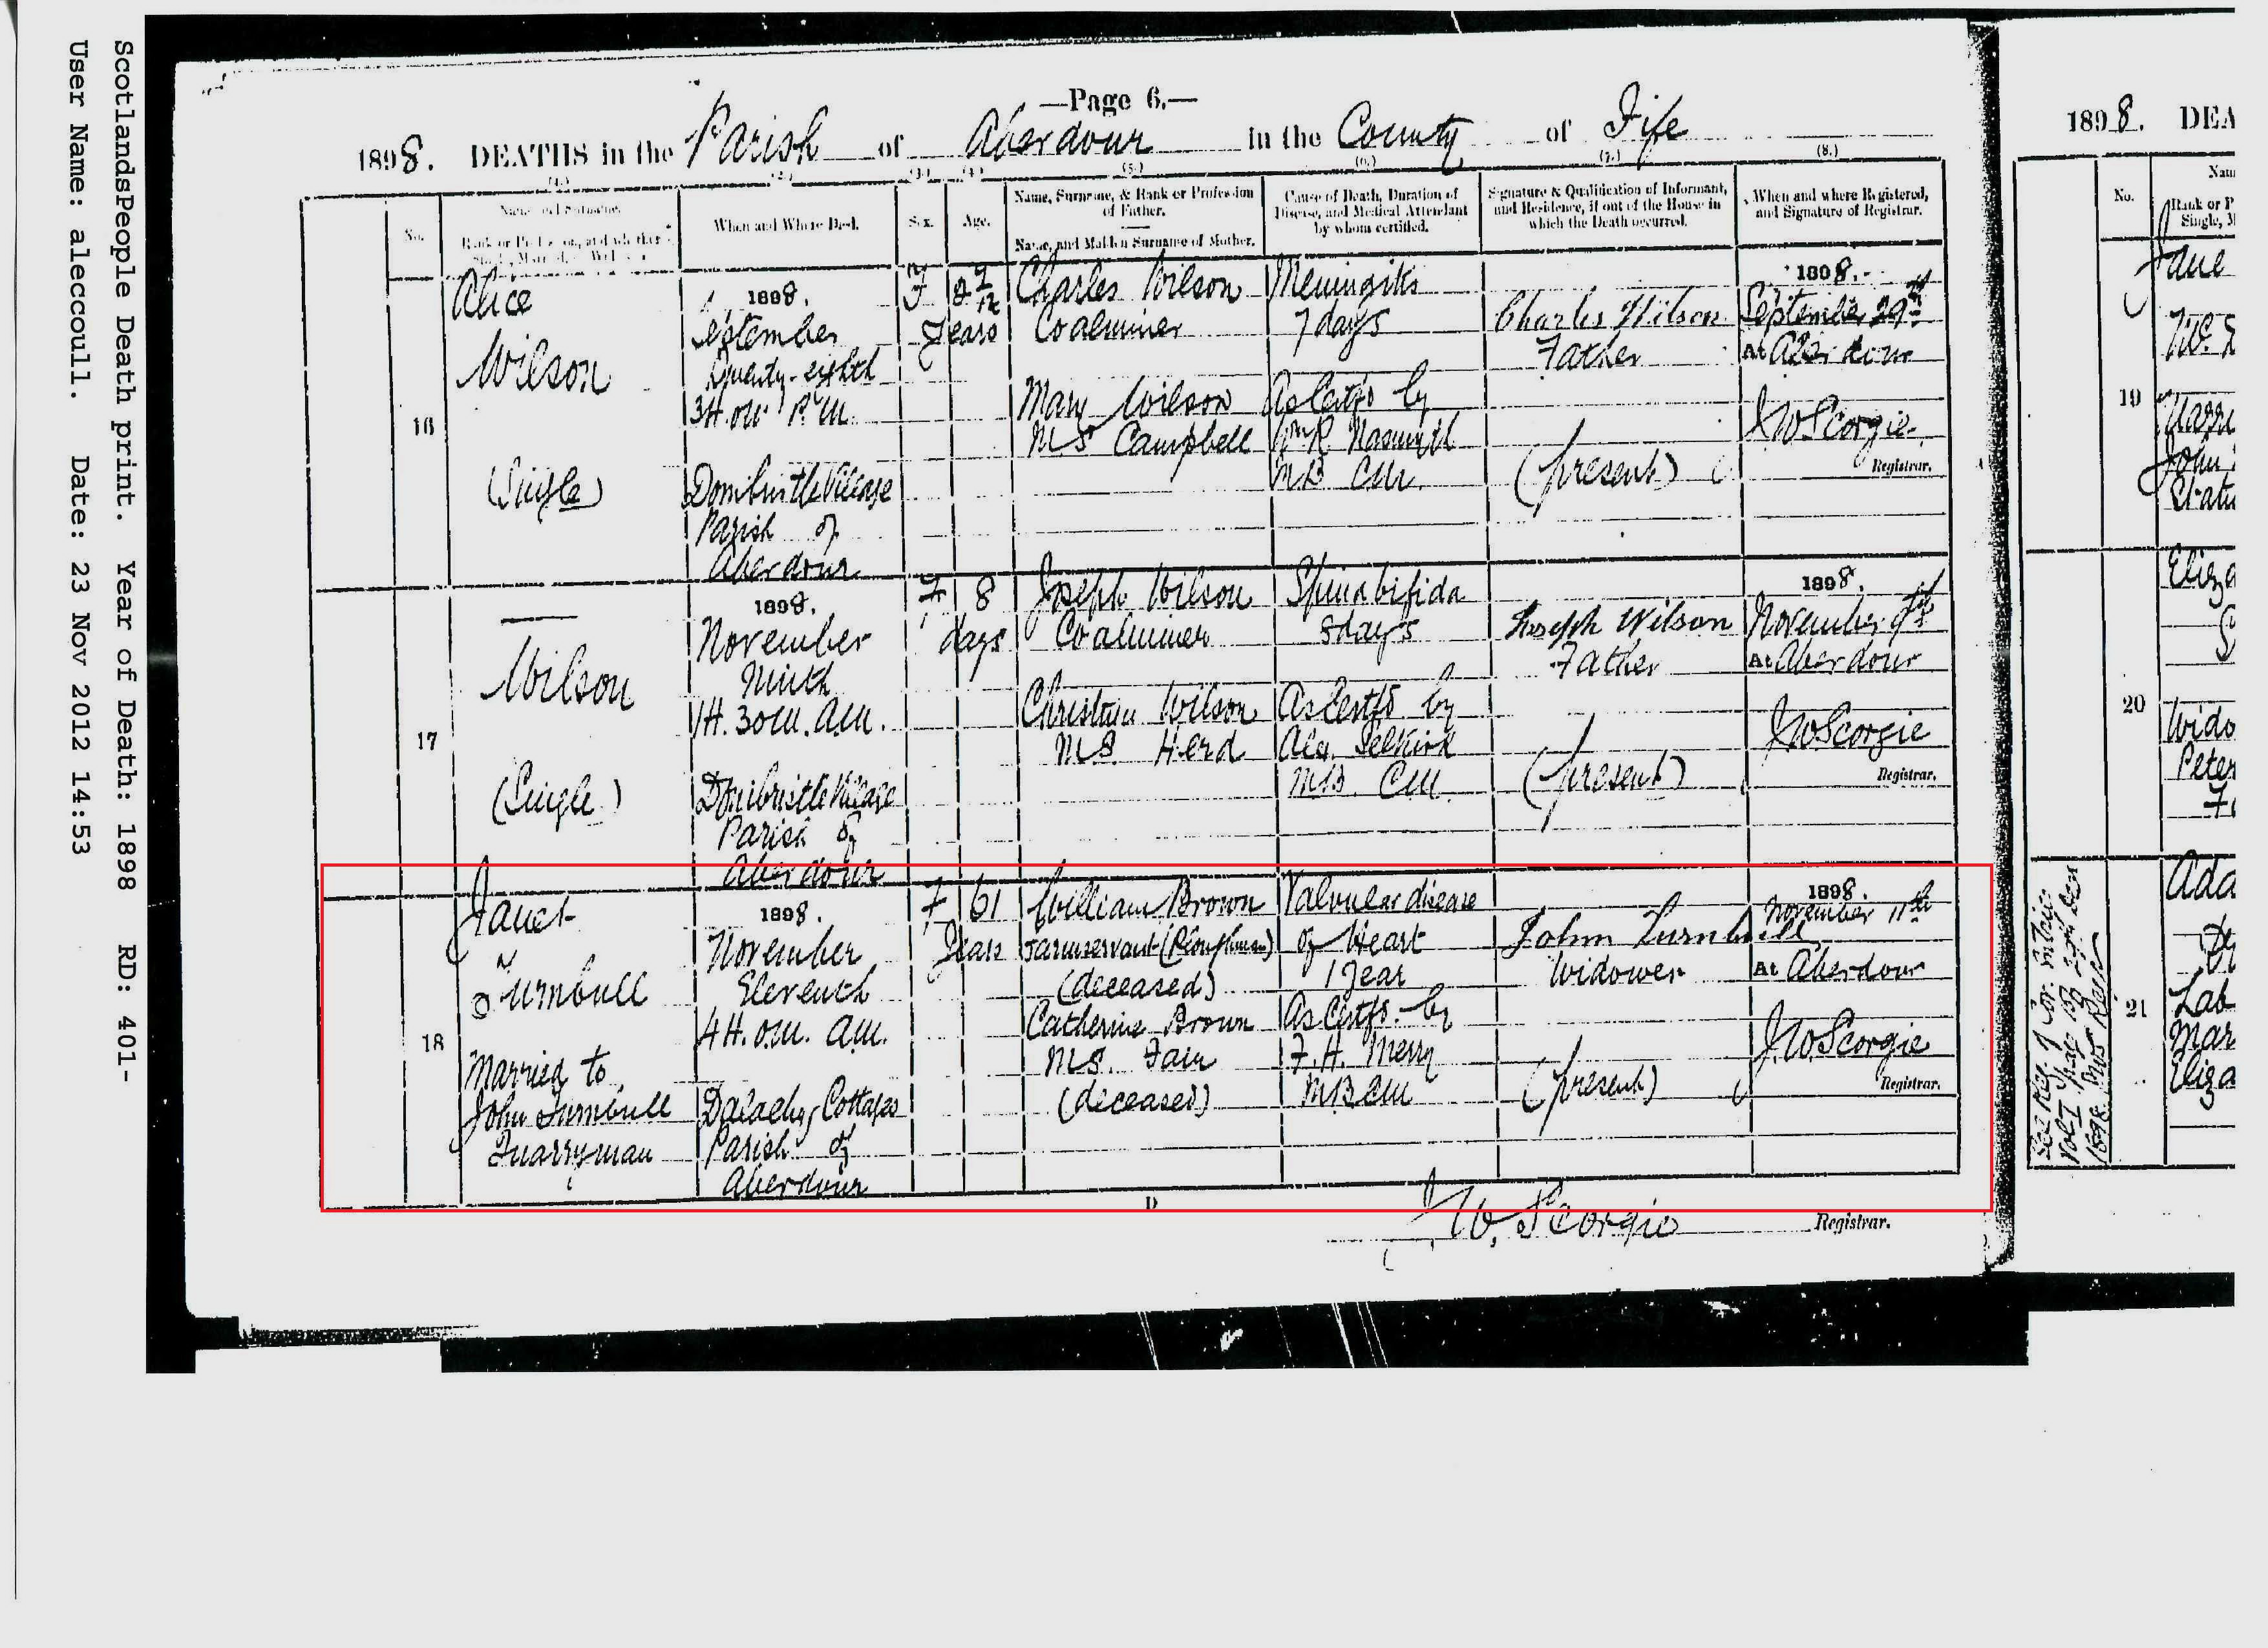 ScotlandsPeople Death print. Year of Death: 1898 RD: 401-
User Name: aleccoull. Date: 23 Nov 2012 14:53
—Page 6.—
1898. DEATHS in the Parish of Aberdour in the County of Fife
(1.) (2.) (3.) (4.) (5.) (6.) (7.) (8.)
No.
Name and Surname.
When and Where Died.
Sex.
Age.
Name, Surname, & Rank or Profession
of Father.
Name, and Maiden Surname of Mother.
Cause of Death, Duration of
Disease, and Medical Attendant
by whom certified.
Signature & Qualification of Informant,
and Residence, if out of the House in
which the Death occurred.
When and where Registered,
and Signature of Registrar.
16
Alice
Wilson
(Single)
1898.
September
Twenty-eighth
3H. 0M. P.M.
Donibristle Village
Parish of
Aberdour
F
Years
Charles Wilson
Coalminer
Mary Wilson
M.S Campbell
Meningitis
7 days
As Certfd by
Wm R. Nasmyth
MB CM.
Charles Wilson
Father
(present)
1898.
September 29th
At Aberdour
J W Scorgie
Registrar.
17
Wilson
(Single)
1898.
November
Ninth
1H. 30M. A.M.
Donibristle Village
Parish of
Aberdour
F
8
days
Joseph Wilson
Coalminer
Christina Wilson
M.S. Herd
Spina bifida
8 days
As Certfd by
Alex. Selkirk
MB. CM
Joseph Wilson
Father
(present)
1898.
November 9th
At Aberdour
J W Scorgie
Registrar.
18
Janet
Turnbull
Married to
John Turnbull
Quarryman
1898.
November
Eleventh
4H. 0M. A.M.
Dalachy Cottages
Parish of
Aberdour
F
61
Years
William Brown
Farmservant (Ploughman)
(deceased)
Catherine Brown
M.S. Fair
(deceased)
Valvular disease
of Heart
1 year
As Certfd. by
F. H. Merry
MB CM
John Turnbull
Widower
(present)
1898.
November 11th
At Aberdour
J. W. Scorgie
Registrar.
D
J. W. Scorgie
Registrar.
1898. DEA
No.
Nam
Rank or P
Single, M
19
Jane
John
20
Eliza
Wido
Peter
21
Ada
Lab
Mar
Eliza